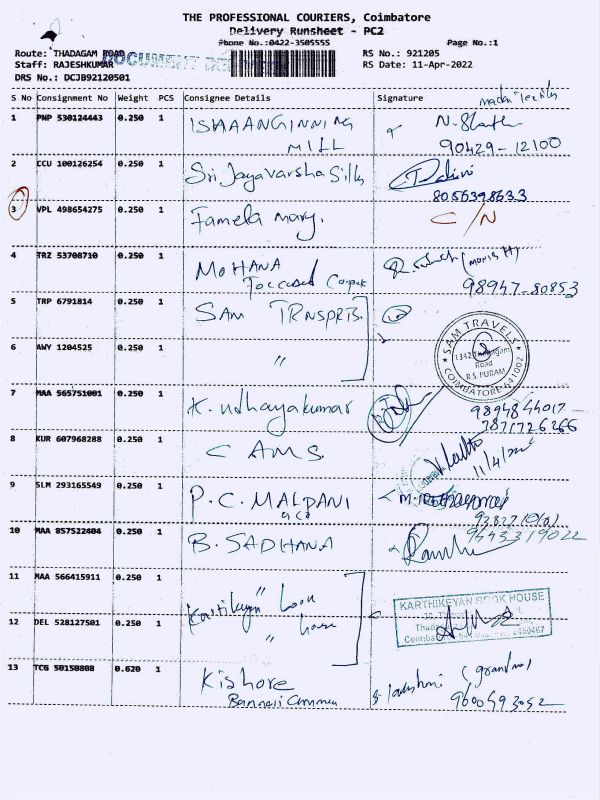 THE PROFESSIONAL COURIERS, Coimbatore
Delivery Runsheet - PC2
Phone No.:0422-3505555 Page No.:1
Route: THADAGAM ROAD RS No.: 921205
Staff: RAJESHKUMAR DOCUMENT RS Date: 11-Apr-2022
DRS No.: DCJB92120501
S No Consignment No Weight PCS Consignee Details Signature
1 PNP 530124443 0.250 1 ISHAAANGINNING
MILL
90429-12100
2 CCU 100126254 0.250 1 Sri Jayavarsha Silks
8056398633
3 VPL 498654275 0.250 1 Famela mary. C/N
4 TRZ 53708710 0.250 1 MOHANA
98947-80853
5 TRP 6791814 0.250 1 SAM TRNSPRTS.
6 AWY 1204525 0.250 1 "
SAM TRAVELS
Road
R.S. PURAM
COIMBATORE 641002
7 MAA 565751001 0.250 1 K. Udhayakumar
9894844017
7871726266
8 KUR 607968288 0.250 1 CAMS
9 SLM 293165549 0.250 1 P.C. MALPANI
& co
10 MAA 857522404 0.250 1 B. SADHANA
9443319022
11 MAA 566415911 0.250 1 "
Kartikeyan book
12 DEL 528127501 0.250 1 " house
KARTHIKEYAN BOOK HOUSE
13 TCG 50150808 0.620 1 Kishore
(grandma)
9600593052